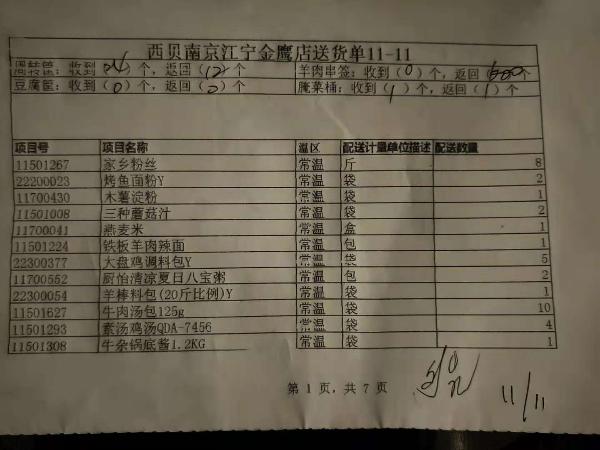 西贝南京江宁金鹰店送货单11-11
周转筐：收到（24）个，返回（12）个 羊肉串签：收到（0）个，返回（600）个
豆腐筐：收到（0）个，返回（0）个 腌菜桶：收到（1）个，返回（1）个
项目号 项目名称 温区 配送计量单位描述 配送数量
11501267 家乡粉丝 常温 斤 8
22200023 烤鱼面粉Y 常温 袋 2
11700430 木薯淀粉 常温 袋 1
11501008 三种蘑菇汁 常温 袋 2
11700041 燕麦米 常温 盒 1
11501224 铁板羊肉辣面 常温 包 1
22300377 大盘鸡调料包Y 常温 袋 5
11700552 厨怡清凉夏日八宝粥 常温 包 2
22300054 羊棒料包(20斤比例)Y 常温 袋 1
11501627 牛肉汤包125g 常温 袋 10
11501293 素汤鸡汤QDA-7456 常温 袋 4
11501308 牛杂锅底酱1.2KG 常温 袋 1
第 1 页，共 7 页
11/11